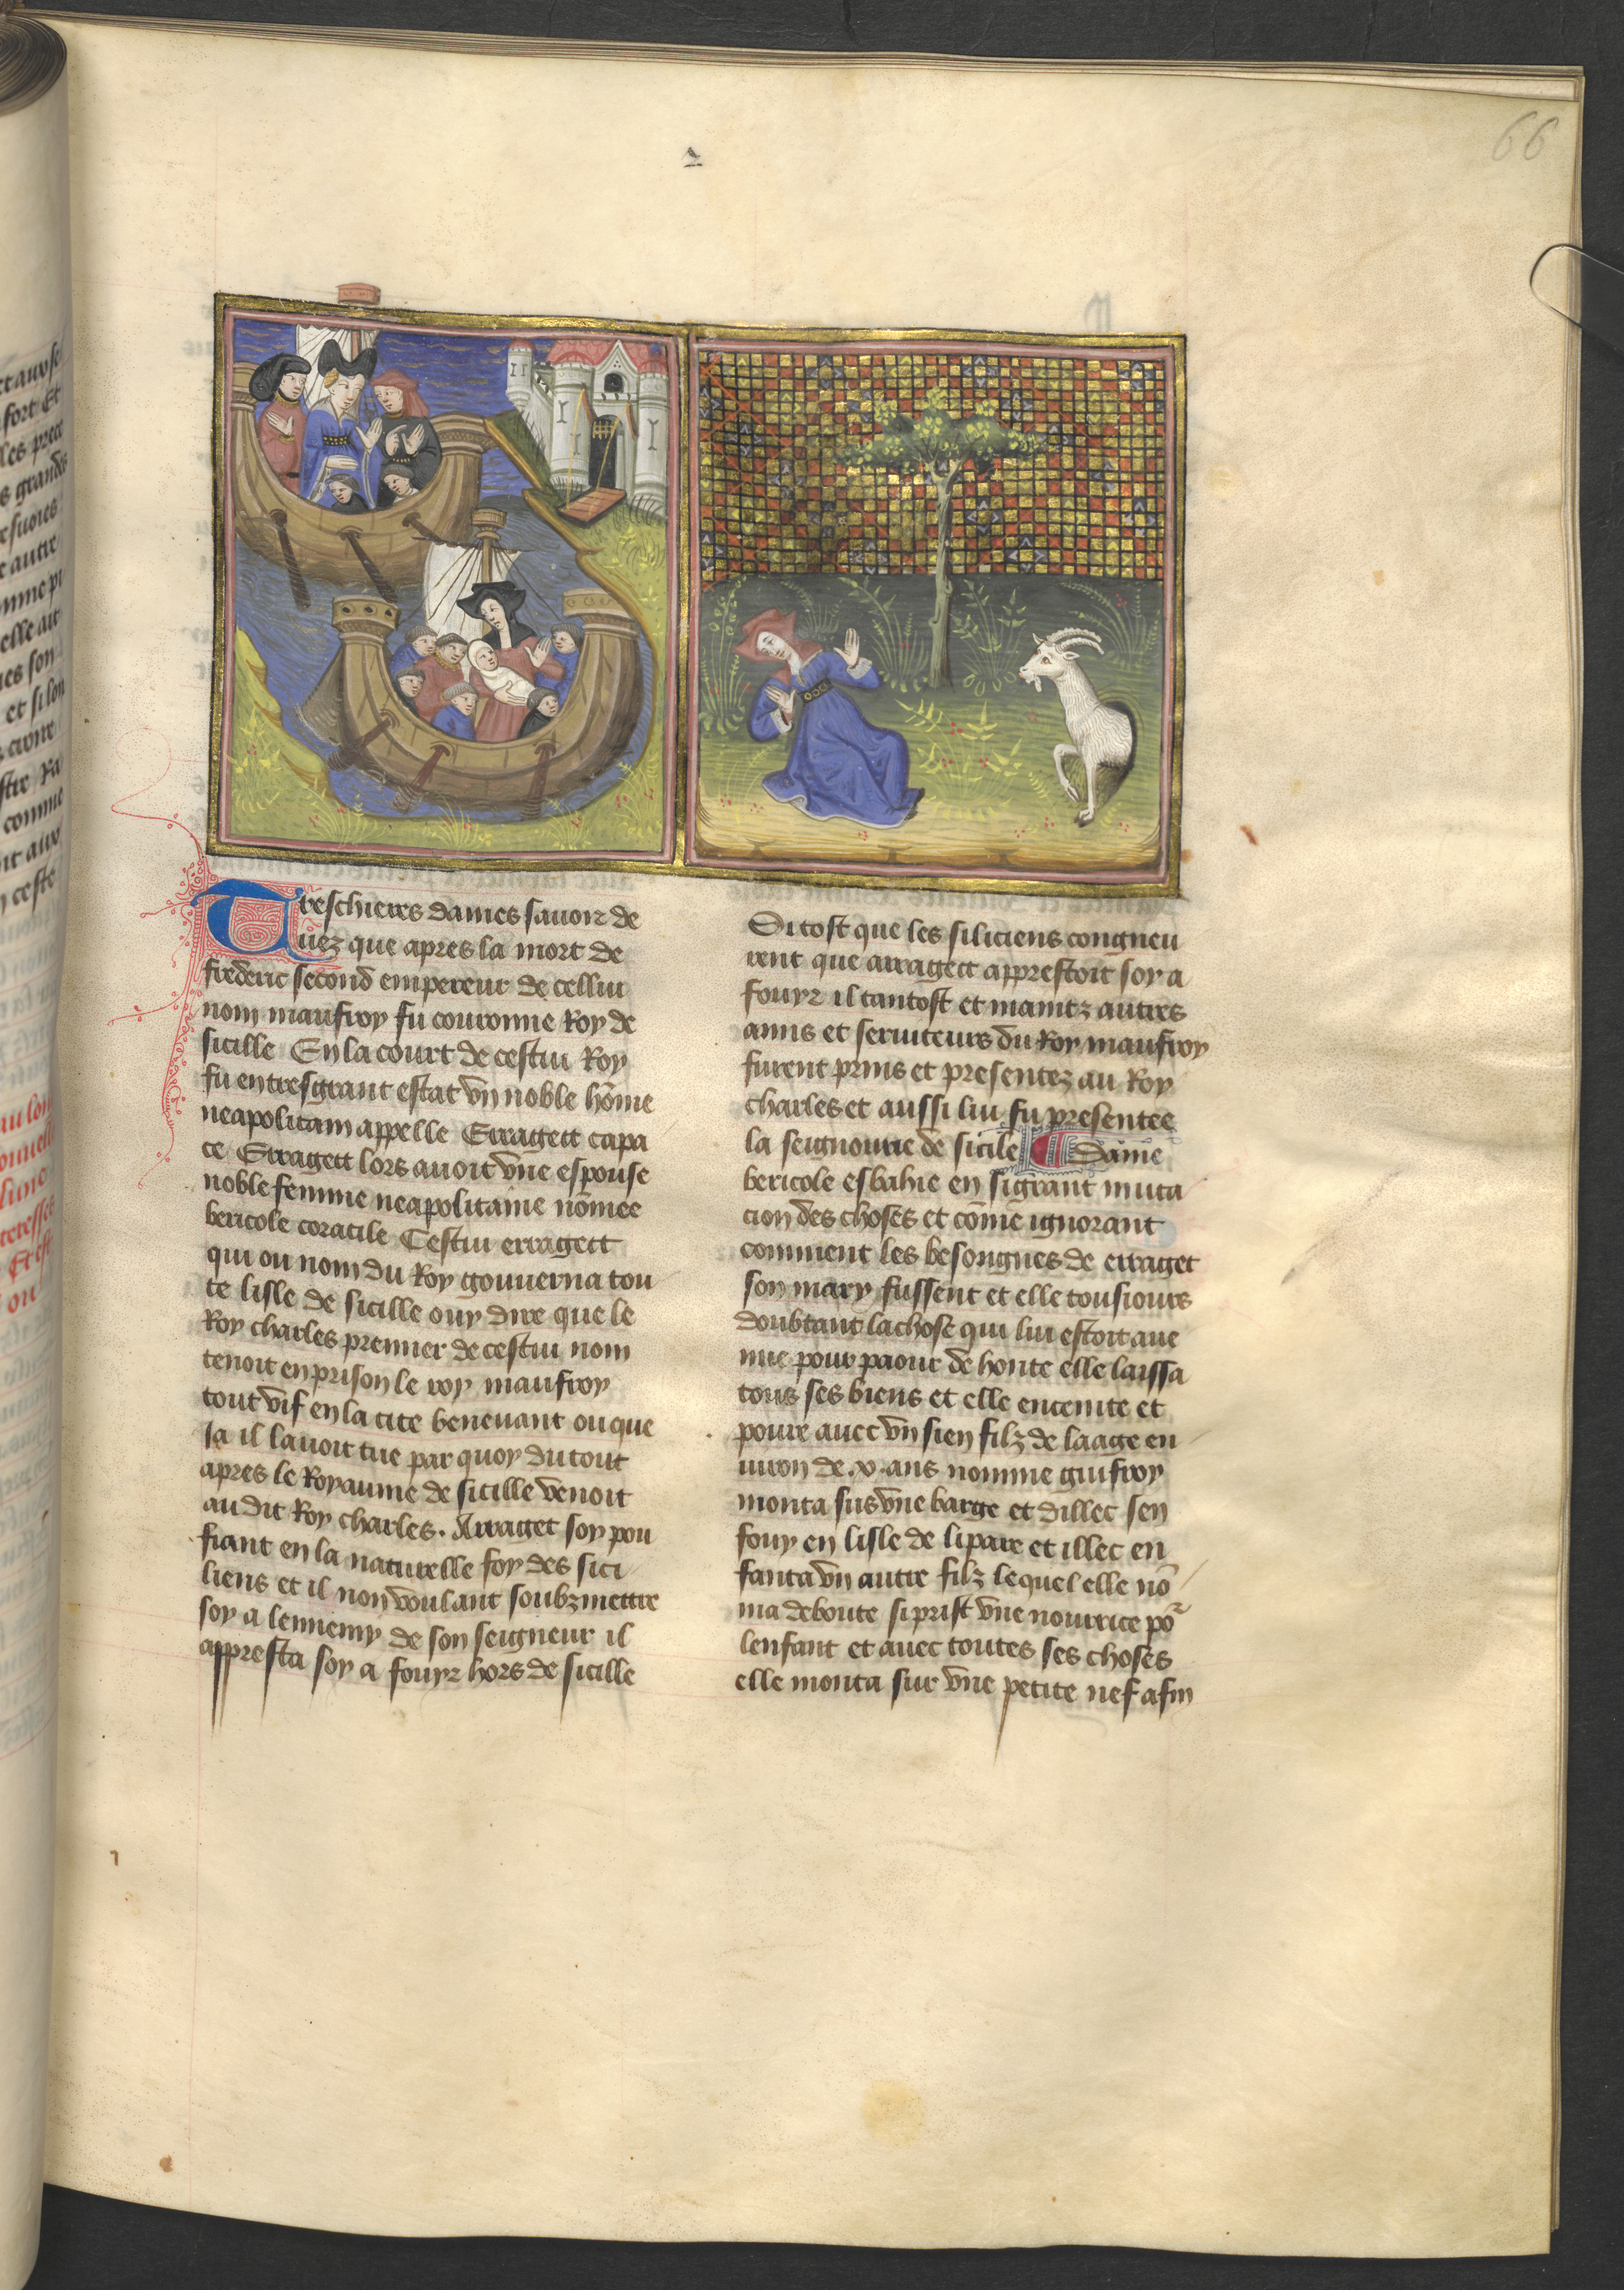 66
Treschieres dames sauoir de
uez que apres la mort de
frederic second empereur de cellui
nom maufroy fu couronne Roy de
sicille En la court de cestui Roy
fu en tresgrant estat vn noble hōme
neapolitain appelle Erragett capa
ce Erragett lors auoit vne espouse
noble femme neapolitaine nōmee
bericole coracile Cestui erragett
qui ou nom du Roy gouuerna tou
te lisle de sicille ouy dire que le
Roy charles premier de cestui nom
tenoit en prison le roy maufroy
tout vif en la cite beneuant ou que
Ja il lauoit tue par quoy du tout
apres le Royaume de sicille venoit
au dit Roy charles. Arraget soy pou
fiant en la naturelle foy des sici
liens et il non voulant soubzmettre
soy a lennemy de son seigneur il
appresta soy a fouyr hors de sicille
Si tost que les siliciens congneu
rent que arragett apprestoit soy a
fouyr il tantost et maintz autres
amis et seruiteurs du Roy maufroy
furent prins et presentez au Roy
charles et aussi lui fu presentee
la seignourie de sicile Dame
bericole esbahie en si grant muta
cion des choses et cōme ignorant
comment les besongnes de erraget
son mary fussent et elle tousiours
doubtant la chose qui lui estoit aue
nue pour paour de honte elle laissa
tous ses biens et elle enceinte et
poure auec vn sien filz de laage en
uiron de .v. ans nomme guifroy
monta sus vne barge et dillec sen
fouy en lisle de lipare et illec en
fanta vn autre filz lequel elle nō
ma deboute si prist vne nourrice po͛
lenfant et auec toutes ses choses
elle monta sur vne petite nef afin